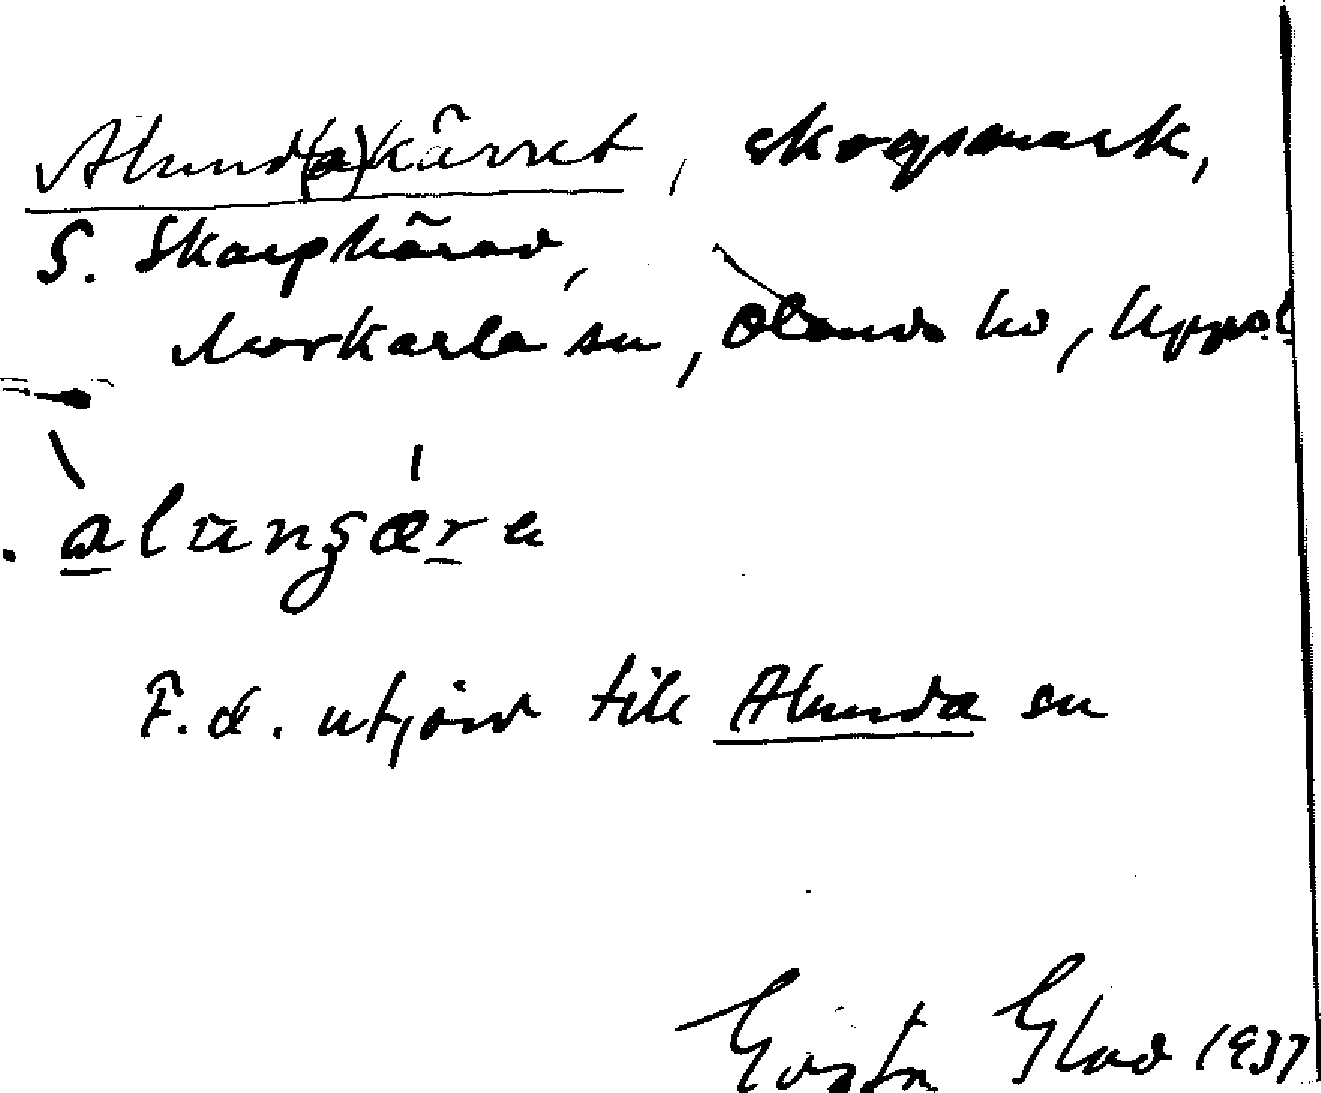 Alund(a)kärret, skogsmark,
S. Skarphärad,
Morkarla sn, Olands hd, Uppsl
F.d. utjord till Alunda sn
Gösta Glad 1937